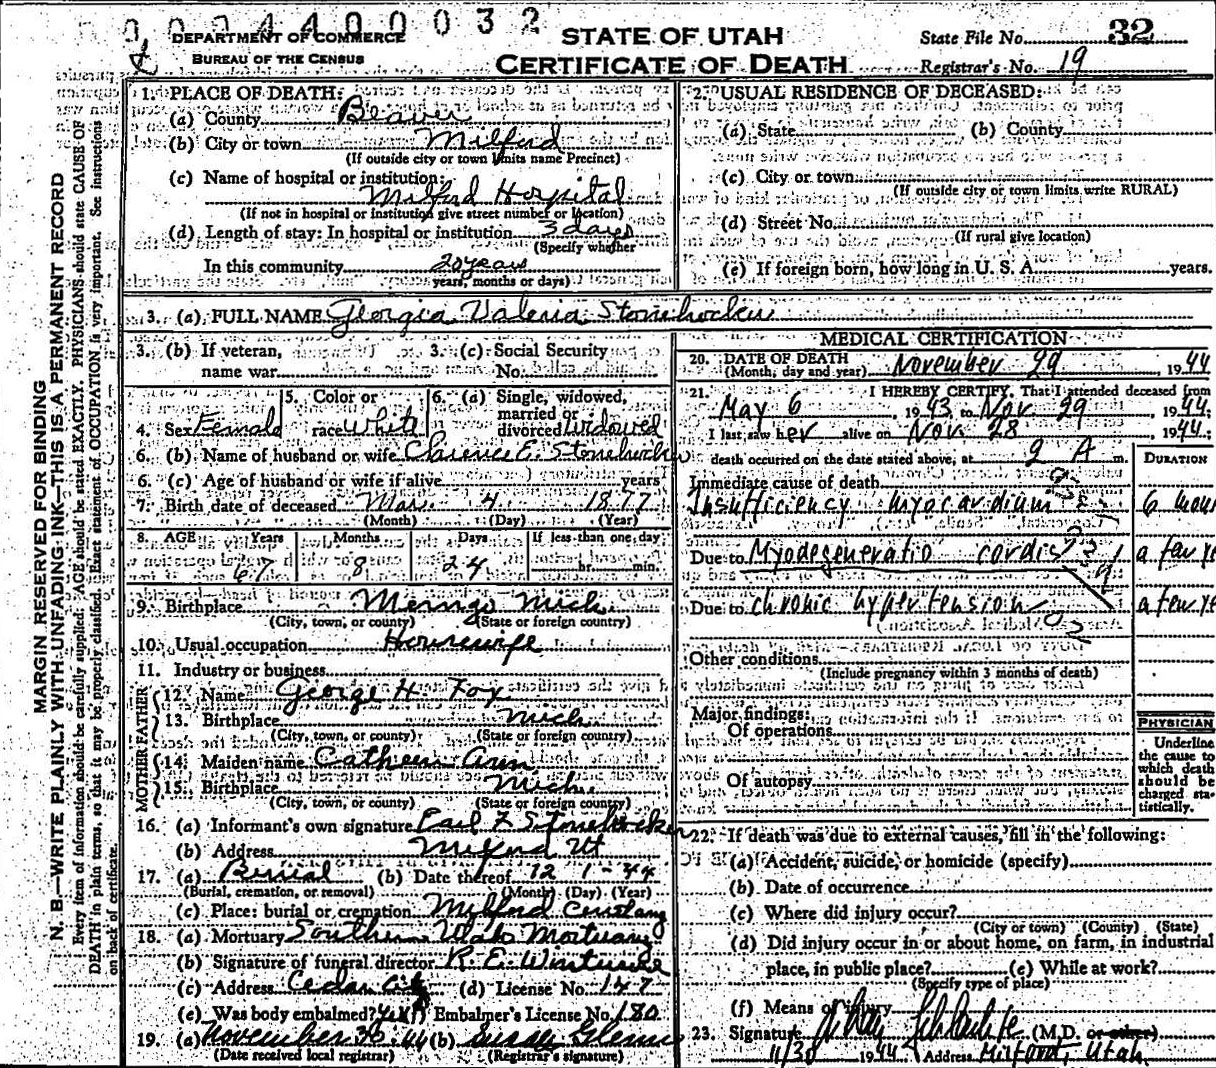 0024400032
DEPARTMENT OF COMMERCE
BUREAU OF THE CENSUS
STATE OF UTAH
CERTIFICATE OF DEATH
State File No. 32
Registrar's No. 19
MARGIN RESERVED FOR BINDING
N. B.—WRITE PLAINLY WITH UNFADING INK—THIS IS A PERMANENT RECORD
Every item of information should be carefully supplied. AGE should be stated EXACTLY. PHYSICIANS should state CAUSE OF
DEATH in plain terms, so that it may be properly classified. Exact statement of OCCUPATION is very important. See instructions
on back of certificate.
1. PLACE OF DEATH:
(a) County Beaver
(b) City or town Milford
(If outside city or town limits name Precinct)
(c) Name of hospital or institution:
Milford Hospital
(If not in hospital or institution give street number or location)
(d) Length of stay: In hospital or institution 3 days
(Specify whether
In this community 20 years
years, months or days)
2. USUAL RESIDENCE OF DECEASED:
(a) State (b) County
(c) City or town
(If outside city or town limits write RURAL)
(d) Street No.
(If rural give location)
(e) If foreign born, how long in U. S. A. years.
3. (a) FULL NAME Georgia Valeria Stonehocker
3. (b) If veteran, name war
3. (c) Social Security No.
4. Sex Female
5. Color or race White
6. (a) Single, widowed, married or divorced Widowed
6. (b) Name of husband or wife Clarence E. Stonehocker
6. (c) Age of husband or wife if alive years
7. Birth date of deceased Mar. 4 1877
(Month) (Day) (Year)
8. AGE Years Months Days If less than one day
67 8 24 hr. min.
9. Birthplace Mich.
(City, town, or county) (State or foreign country)
10. Usual occupation Housewife
11. Industry or business
FATHER
12. Name George H. Fox
13. Birthplace Mich.
(City, town, or county) (State or foreign country)
MOTHER
14. Maiden name Ann
15. Birthplace Mich.
(City, town, or county) (State or foreign country)
16. (a) Informant's own signature Earl F Stonehocker
(b) Address Milford Ut
17. (a) Burial (b) Date thereof 12 1-44
(Burial, cremation, or removal) (Month) (Day) (Year)
(c) Place: burial or cremation Milford Cemetary
18. (a) Mortuary Southern Utah Mortuary
(b) Signature of funeral director R. E.
(c) Address Cedar City (d) License No. 147
(e) Was body embalmed? yes Embalmer's License No. 180
19. (a) November 30 44 (b)
(Date received local registrar) (Registrar's signature)
MEDICAL CERTIFICATION
20. DATE OF DEATH
(Month, day and year) November 29, 1944
21. I HEREBY CERTIFY, That I attended deceased from
May 6, 1943, to Nov 29 1944;
I last saw her alive on Nov. 28, 1944;
death occurred on the date stated above, at 2 A m.
DURATION
Immediate cause of death
Insufficiency myocardium 6 hours
Due to Myodegeneratio cordis a few ye
Due to chronic hypertension a few ye
Other conditions
(Include pregnancy within 3 months of death)
Major findings:
Of operations
Of autopsy
PHYSICIAN
Underline
the cause to
which death
should be
charged sta-
tistically.
22. If death was due to external causes, fill in the following:
(a) Accident, suicide, or homicide (specify)
(b) Date of occurrence
(c) Where did injury occur?
(City or town) (County) (State)
(d) Did injury occur in or about home, on farm, in industrial
place, in public place? (e) While at work?
(Specify type of place)
(f) Means of injury
23. Signature (M.D. or other)
11/30 1944 Address Milford, Utah